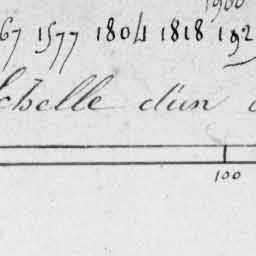 1900
67 1577 1804 1818 192
Echelle d'un
100